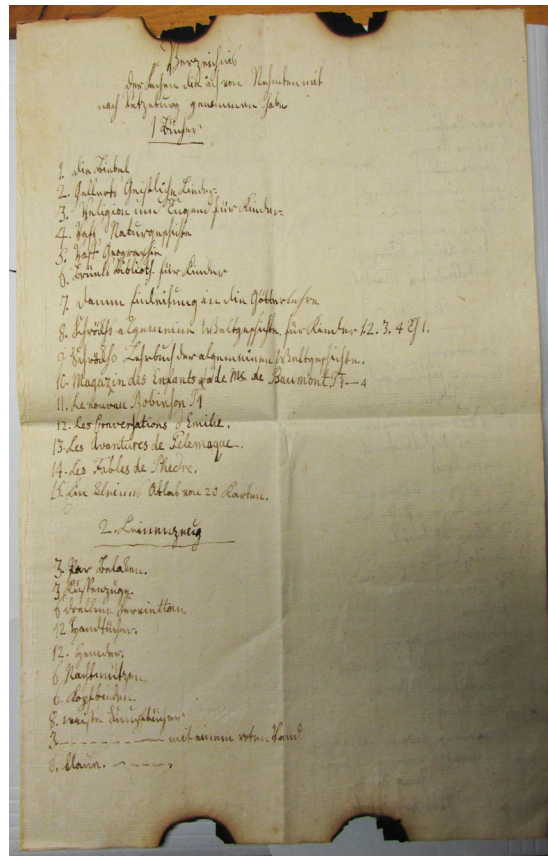 Verzeichnis
der Sachen die ich von Nehmten mit
nach Ratzeburg genommen habe
1 Bücher
1. die Biebel
2. Gellerts Geistliche Lieder.
3. Religion und Tugend für Kinder.
4. Raff Naturgeschichte
5. Raff Geographie
6. Biblioth für Kinder
7. Damm Einleitung in die Götterlehre
8. Schröckhs algemeine Weltgeschichte für Kinder 1. 2. 3. 4
9. Schröckhs Lehrbuch der algemeinen Weltgeschichte.
10. Magazin des Enfants de Me de Baumont T 1-4
11. Le nouvau Robinson T 1
12. Les Conversations d'Emilie.
13. Les Avantures de Telemaque.
14. Les Fables de Phedre.
15. Ein kleiner Atlas von 20 Karten.
2. Leinenzeug
3. Par Belaken.
3. Küssenzüge.
6 drellene Servietten
12 Handtücher.
12. Hemder.
6 Nachtmützen.
6. Kopfbinden.
8. weiße Schnupftücher
3 - - - - mit einem roten Rand
8. blaue. - - - -